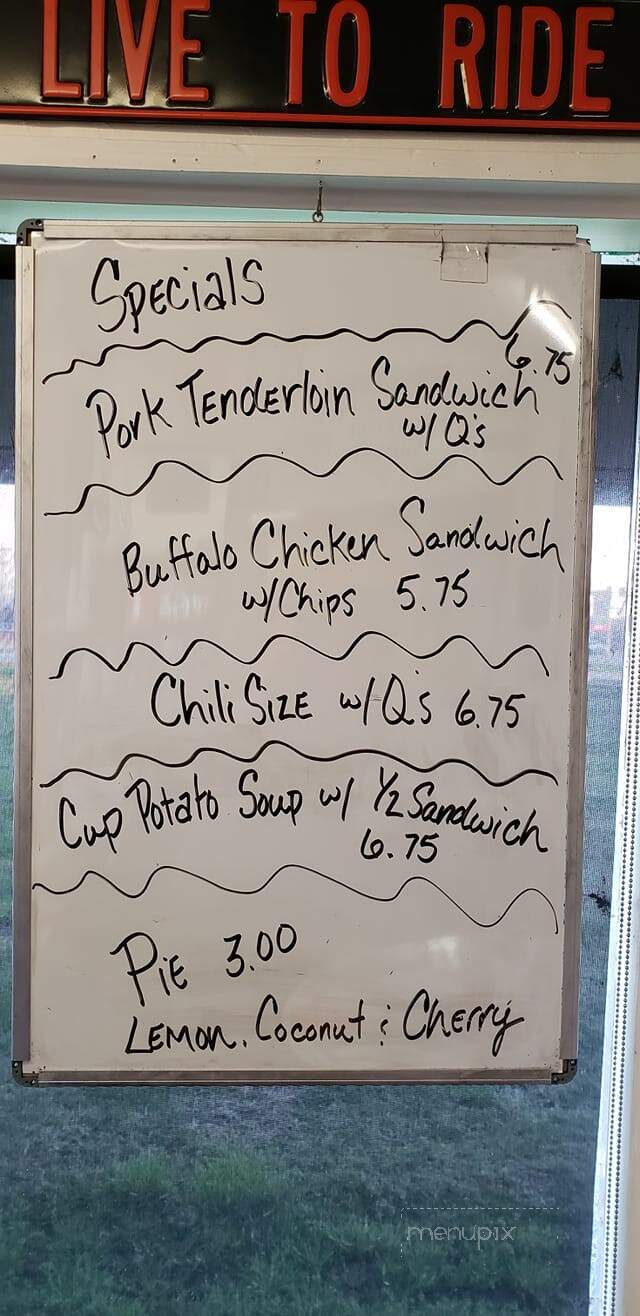 LIVE TO RIDE
Specials
6.75
Pork Tenderloin Sandwich
w/ Q's
Buffalo Chicken Sandwich
w/Chips 5.75
Chili Size w/Q's 6.75
Cup Potato Soup w/ 1/2 Sandwich
6.75
Pie 3.00
Lemon, Coconut & Cherry
menupix